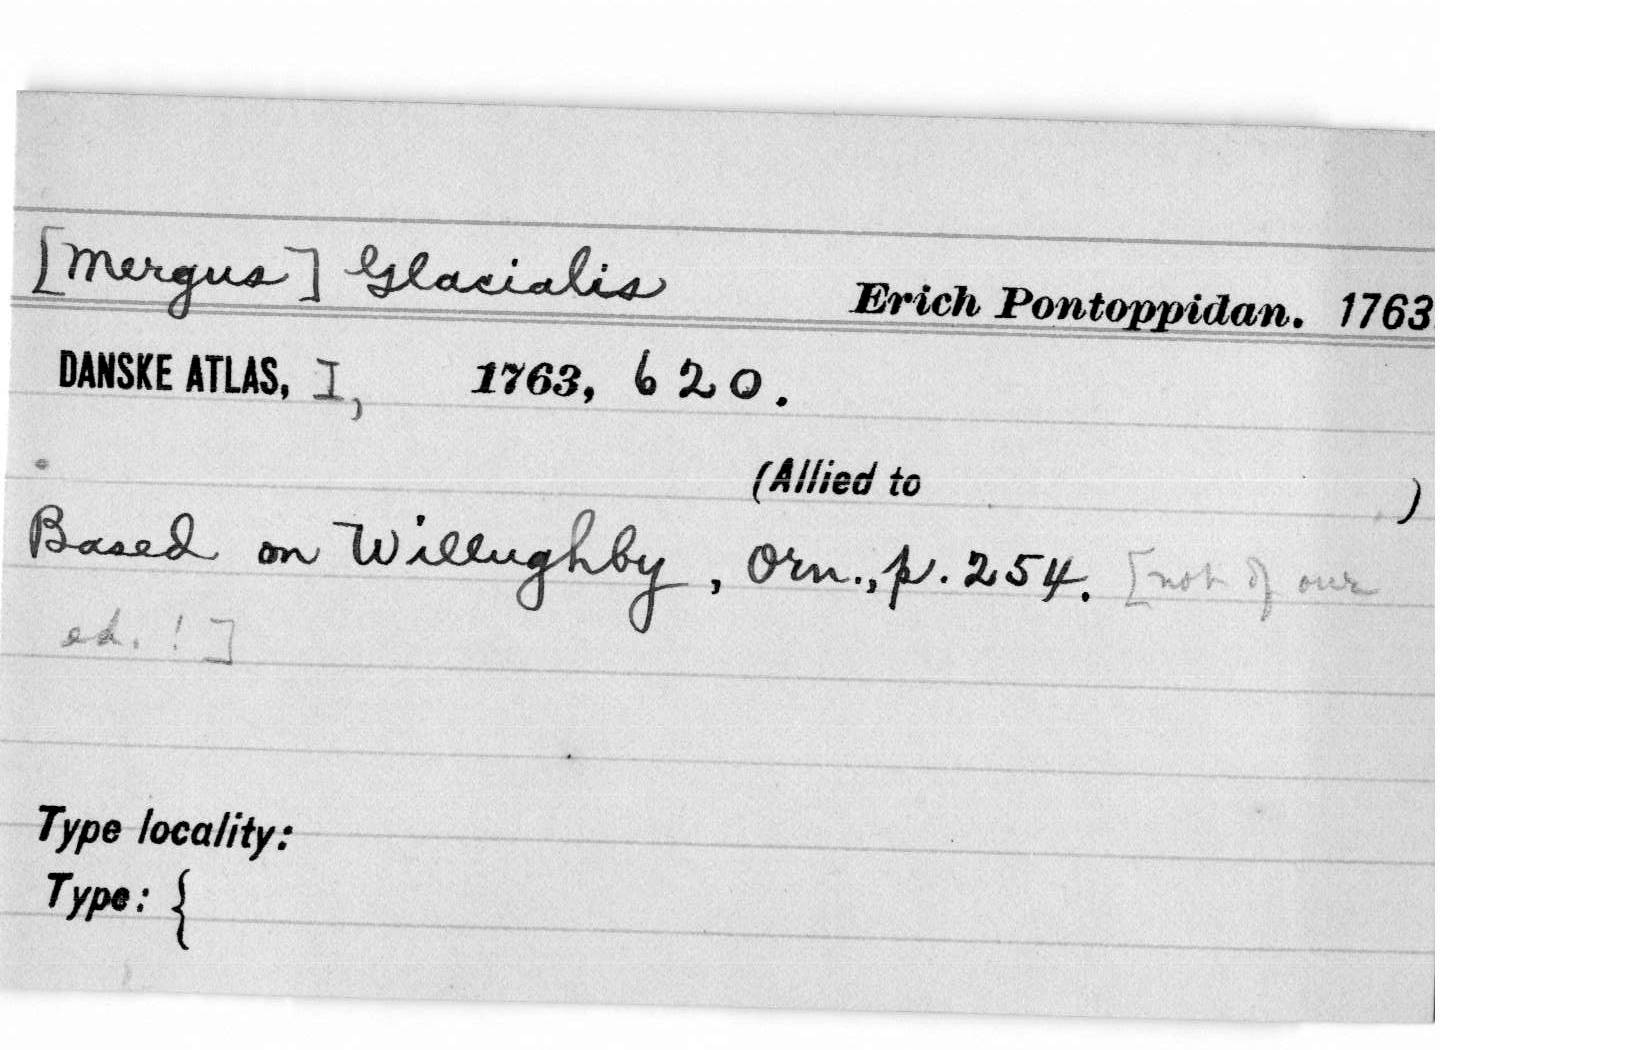 [Mergus] Glacialis Erich Pontoppidan. 1763
DANSKE ATLAS, I, 1763, 620.
(Allied to )
Based on Willughby, Orn., p. 254. [not of our
ed. ! ]
Type locality:
Type: {